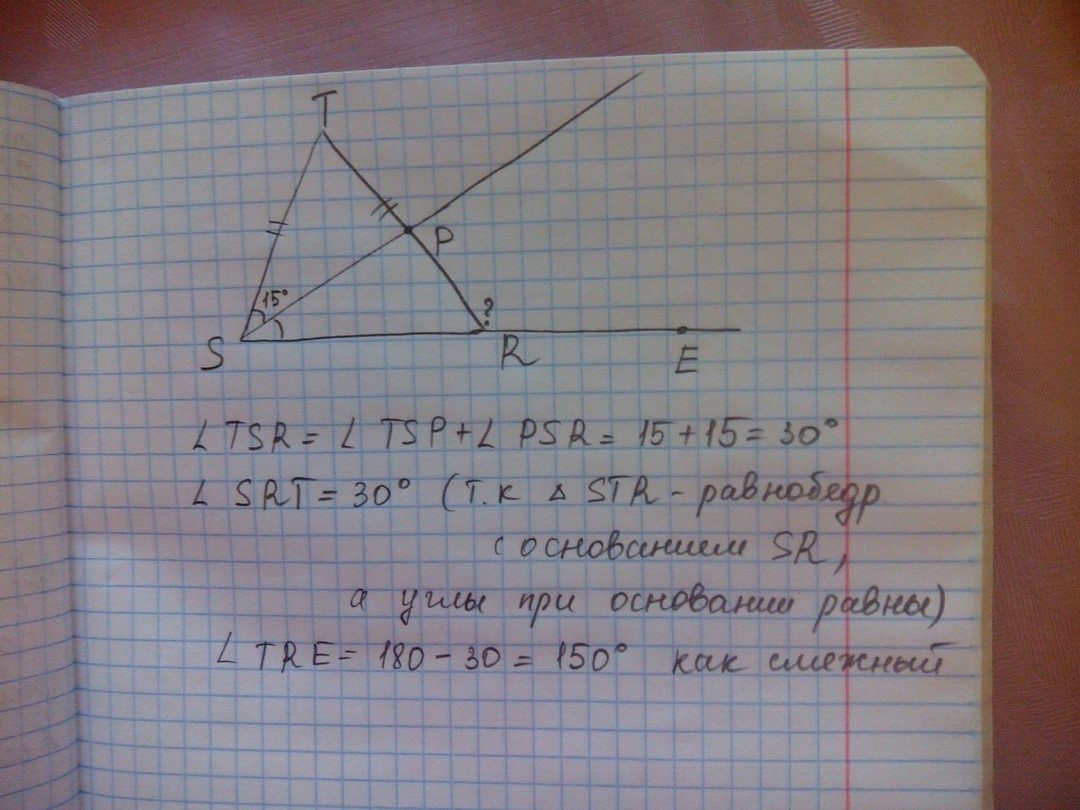 T
15°
P
?
S
R
E
∠ TSR = ∠ TSP + ∠ PSR = 15 + 15 = 30°
∠ SRT = 30° (т.к △ STR - равнобедр.
с основанием SR,
а углы при основании равны)
∠ TRE = 180 - 30 = 150° как смежный